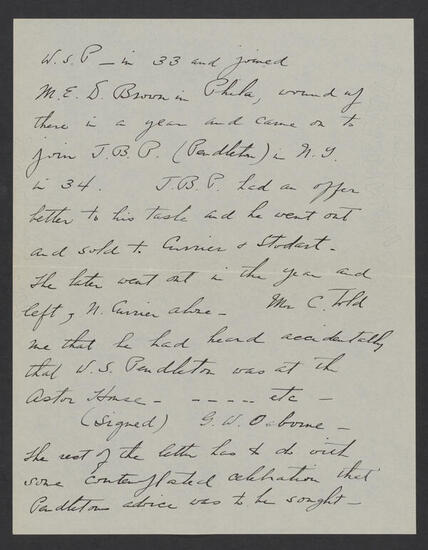 W.S.P - in 33 and joined
M.E.D. Brown in Phila, wound up
there in a year and came on to
join J.B.P. (Pendleton) in N.Y.
in 34. J.B.P. had an offer
better to his taste and he went out
and sold to Currier & Stodart -
The later went out in the year and
left, N. Currier alone - Mr C. told
me that he had heard accidentally
that W.S. Pendleton was at the
Astor House - - - - - - etc -
(Signed) G.W. Osborne -
The rest of the letter has to do with
some contemplated celebration that
Pendletons advice was to be sought -